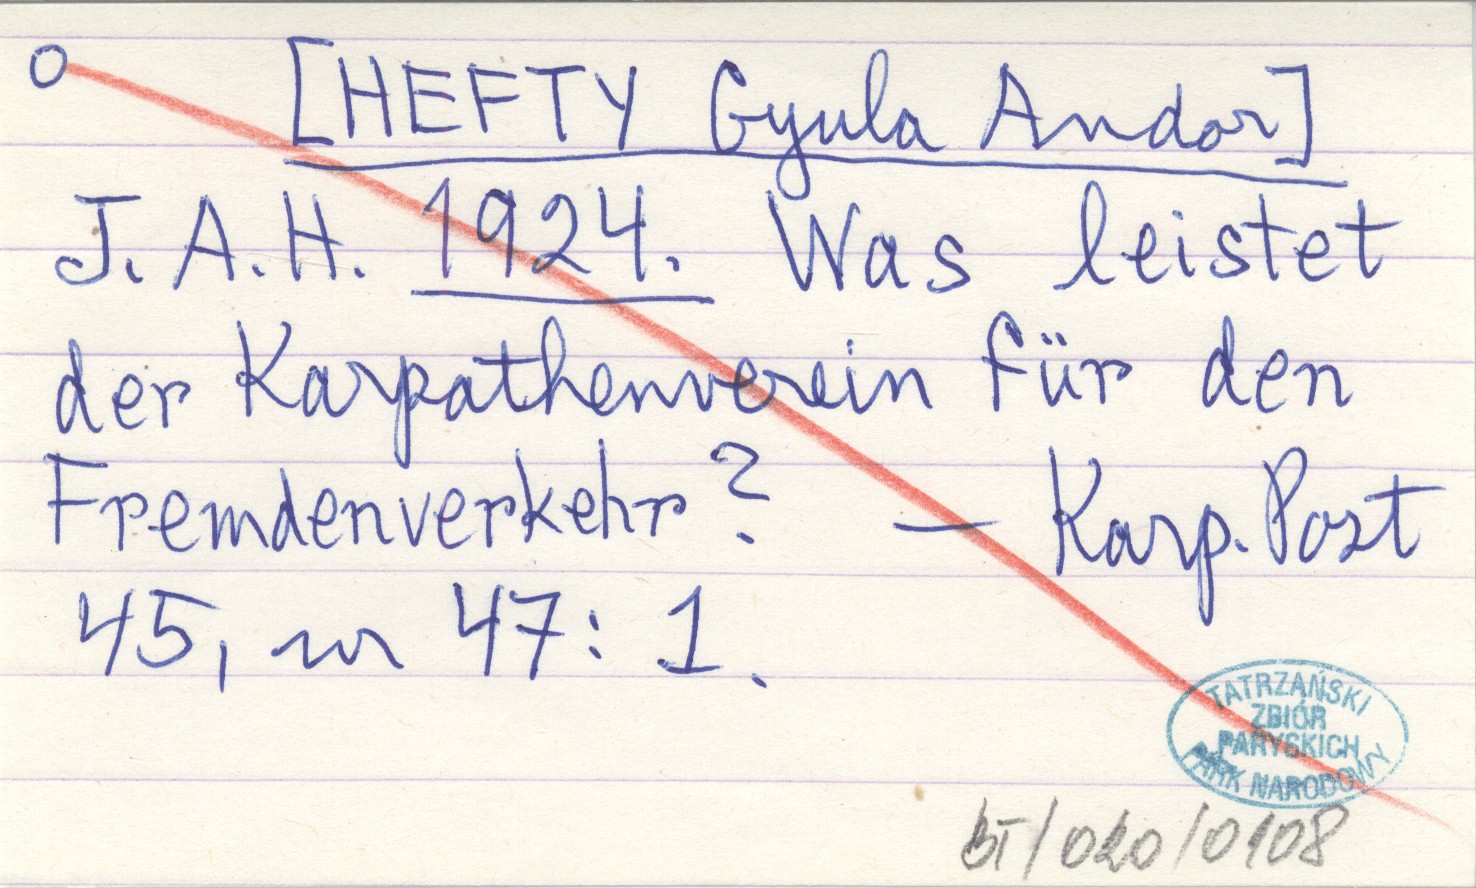 o [HEFTY Gyula Andor]
J. A. H. 1924. Was leistet
der Karpathenverein für den
Fremdenverkehr? — Karp. Post
45, nr 47: 1.
TATRZAŃSKI
ZBIÓR
PARYSKICH
PARK NARODOWY
BT/020/0108